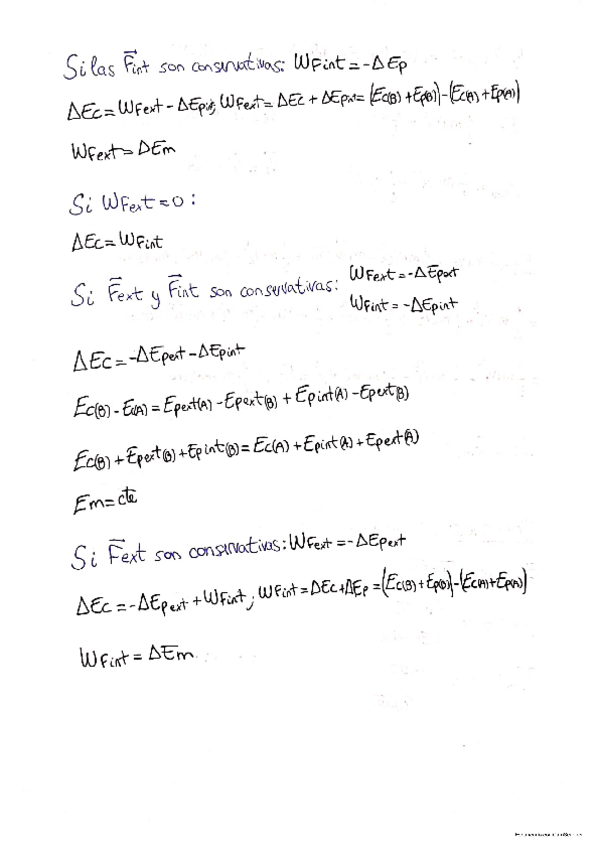 Si las F⃗int son conservativas: WFint = -ΔEp
ΔEc = WFext - ΔEpint; WFext = ΔEc + ΔEpint = (Ec(B) + Ep(B)) - (Ec(A) + Ep(A))
WFext = ΔEm
Si WFext = 0 :
ΔEc = WFint
Si F⃗ext y F⃗int son conservativas: WFext = -ΔEpext
WFint = -ΔEpint
ΔEc = -ΔEpext - ΔEpint
Ec(B) - Ec(A) = Epext(A) - Epext(B) + Epint(A) - Epext(B)
Ec(B) + Epext(B) + Epint(B) = Ec(A) + Epint(A) + Epext(A)
Em = cte
Si F⃗ext son conservativas: WFext = -ΔEpext
ΔEc = -ΔEpext + WFint; WFint = ΔEc + ΔEp = (Ec(B) + Ep(B)) - (Ec(A) + Ep(A))
WFint = ΔEm